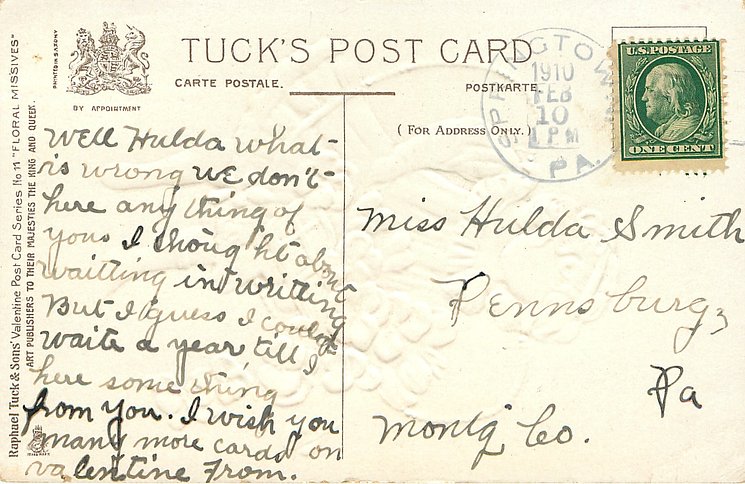 TUCK'S POST CARD
CARTE POSTALE.
POSTKARTE.
BY APPOINTMENT
PRINTED IN SAXONY
(FOR ADDRESS ONLY.)
Raphael Tuck & Sons' Valentine Post Card Series No 11 "FLORAL MISSIVES"
ART PUBLISHERS TO THEIR MAJESTIES THE KING AND QUEEN.
SPRINGTOWN
1910
FEB
10
1 PM
PA.
U.S. POSTAGE
ONE CENT
Well Hulda what
is wrong we don't
here any thing of
yous I thoug'ht about
waitting in writting
But I guess I could
waite a year till I
here some thing
from you. I wish you
many more cards on
valentine From.
Miss Hulda Smith
Pennsburg,
Pa
Montg Co.